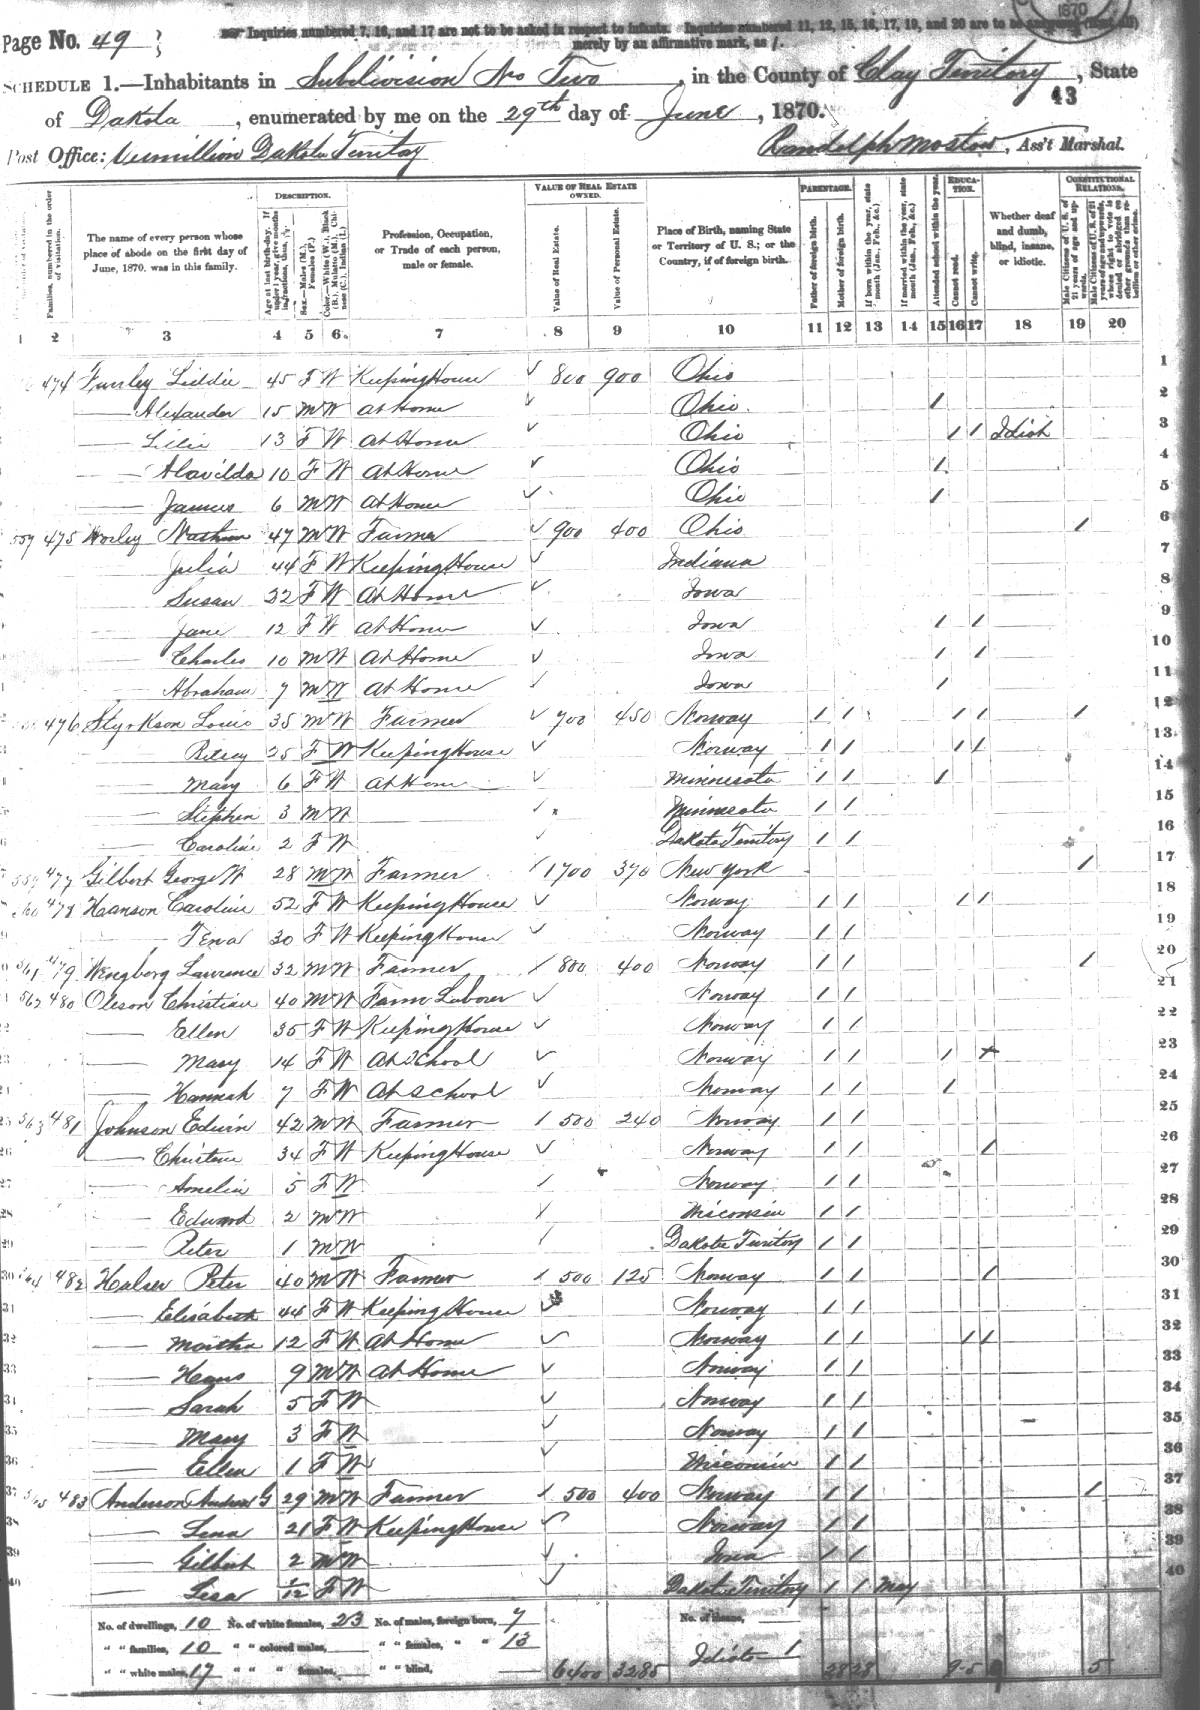 1870
Page No. 49
Inquiries numbered 7, 16, and 17 are not to be asked in respect to infants. Inquiries numbered 11, 12, 15, 16, 17, 19, and 20 are to be answered (if at all)
merely by an affirmative mark, as /.
SCHEDULE 1.—Inhabitants in Subdivision No Two, in the County of Clay Territory, State
43
of Dakota, enumerated by me on the 29th day of June, 1870.
Post Office: Vermillion Dakota Territory Randolph, Ass't Marshal.
Families, numbered in the order of visitation.
The name of every person whose place of abode on the first day of June, 1870, was in this family.
DESCRIPTION.
Age at last birth-day. If under 1 year, give months in fractions, thus,
Sex.—Males (M.), Females (F.)
Color.—White (W.), Black (B.), Mulatto (M.), Chinese (C.), Indian (I.)
Profession, Occupation, or Trade of each person, male or female.
VALUE OF REAL ESTATE OWNED.
Value of Real Estate.
Value of Personal Estate.
Place of Birth, naming State or Territory of U. S.; or the Country, if of foreign birth.
PARENTAGE.
Father of foreign birth.
Mother of foreign birth.
If born within the year, state month (Jan., Feb., &c.)
If married within the year, state month (Jan., Feb., &c.)
Attended school within the year.
EDUCATION.
Cannot read.
Cannot write.
Whether deaf and dumb, blind, insane, or idiotic.
CONSTITUTIONAL RELATIONS.
Male Citizens of U. S. of 21 years of age and upwards.
Male Citizens of U. S. of 21 years of age and upwards, whose right to vote is denied or abridged on other grounds than rebellion or other crime.
1 2 3 4 5 6 7 8 9 10 11 12 13 14 15 16 17 18 19 20
474 Liddie 45 F W Keeping House 800 900 Ohio 1
— Alexander 15 M W At Home Ohio / 2
— 13 F W At Home Ohio / / Idiot 3
— Alavilda 10 F W At Home Ohio / 4
— James 6 M W At Home Ohio / 5
475 Worley 47 M W Farmer 900 400 Ohio / 6
— Julia 44 F W Keeping House Indiana 7
— Susan 22 F W At Home Iowa 8
— Jane 12 F W At Home Iowa / / 9
— Charles 10 M W At Home Iowa / / 10
— Abraham 7 M W At Home Iowa / 11
476 Styrkson Louis 35 M W Farmer 700 450 Norway / / / / / 12
— 25 F W Keeping House Norway / / / / 13
— Mary 6 F W At Home Minnesota / / / 14
— Stephen 3 M W Minnesota / / 15
— Caroline 2 F W Dakota Territory / / 16
559 477 Gilbert George W 28 M W Farmer 1700 370 New York / 17
478 Hanson Caroline 52 F W Keeping House Norway / / / / 18
— Tena 30 F W Keeping House Norway / / 19
561 479 Wengborg Lawrence 32 M W Farmer 800 400 Norway / / / 20
562 480 Oleson Christian 40 M W Farm Laborer Norway / / 21
— Ellen 35 F W Keeping House Norway / / 22
— Mary 14 F W At School Norway / / / + 23
— Hannah 7 F W At School Norway / / / 24
563 481 Johnson Edwin 42 M W Farmer 500 240 Norway / / 25
— Christine 34 F W Keeping House Norway / / / 26
— Amelia 5 F W Norway / / 27
— Edward 2 M W Wisconsin / / 28
— Peter 1 M W Dakota Territory / / 29
482 Halser Peter 40 M W Farmer 500 125 Norway / / / 30
— Elisabeth 44 F W Keeping House Norway / / 31
— Martha 12 F W At Home Norway / / / / 32
— Hans 9 M W At Home Norway / / 33
— Sarah 5 F W Norway / / 34
— Mary 3 F W Norway / / 35
— Ellen 1 F W Wisconsin / / 36
483 Anderson Andrew G 29 M W Farmer 500 400 Norway / / / 37
— Lena 21 F W Keeping House Norway / / 38
— Gilbert 2 M W Iowa / / 39
— Lisa 1/12 F W Dakota Territory / / May 40
No. of dwellings, 10 No. of white females, 23 No. of males, foreign born, 7 No. of insane,
" " families, 10 " " colored males, " " females, " " 13 Idiots 1
" " white males, 17 " " " females, " " blind, 6400 3285 28 28 9 5 5